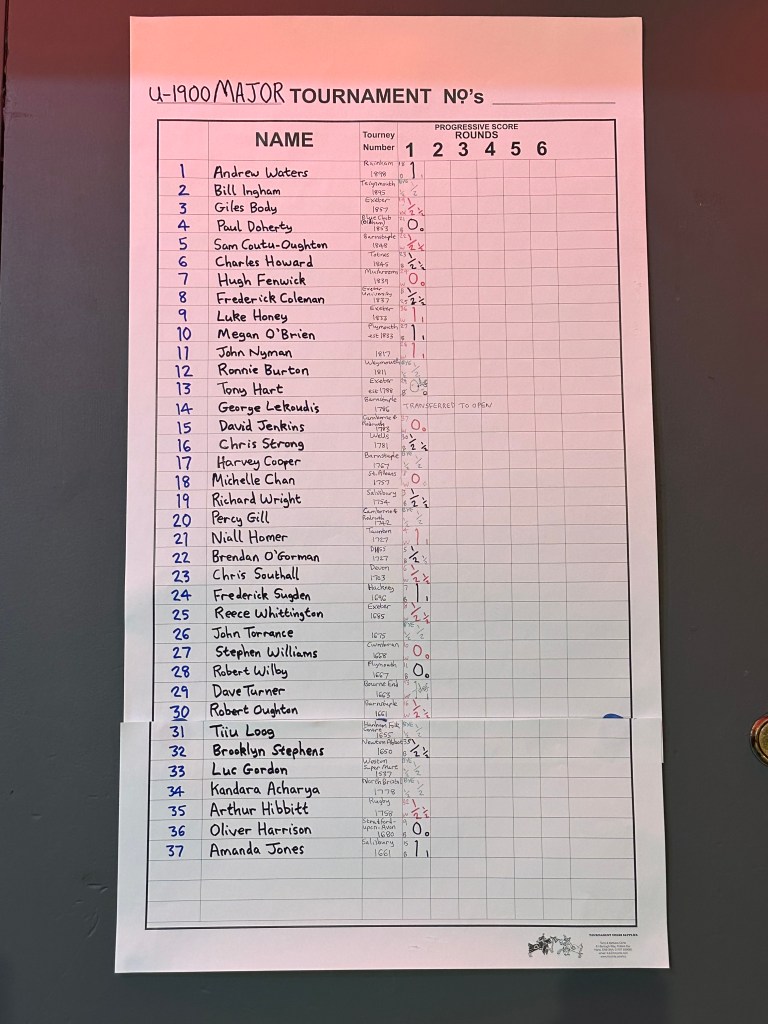 U-1900 MAJOR TOURNAMENT Nọ's
PROGRESSIVE SCORE
NAME Tourney Number ROUNDS
1 2 3 4 5 6
1 Andrew Waters Rainham 1898 1 1
2 Bill Ingham Teignmouth 1895 1/2
3 Giles Body Exeter 1857 1/2 1/2
4 Paul Doherty 1853 0 0
5 Sam Coutu-Oughton Barnstaple 1848 1/2 1/2
6 Charles Howard Totnes 1845 1/2 1/2
7 Hugh Fenwick Mushroom 1839 0 0
8 Frederick Coleman Exeter University 1837 1/2 1/2
9 Luke Honey Exeter 1 1
10 Megan O'Brien Plymouth est 1 1
11 John Nyman 1817 1 1
12 Ronnie Burton Weymouth 1811 1/2
13 Tony Hart Exeter est 1788
14 George Lekoudis Barnstaple 1786 TRANSFERRED TO OPEN
15 David Jenkins Camborne & Redruth 0 0
16 Chris Strong Wells 1781 1/2 1/2
17 Harvey Cooper Barnstaple 1767 1/2
18 Michelle Chan St. Albans 1757 0
19 Richard Wright Salisbury 1754 1/2 1/2
20 Percy Gill Camborne & Redruth 1742
21 Niall Homer Taunton 1727 1 1
22 Brendan O'Gorman 1727 1/2 1/2
23 Chris Southall Devon 1703 1/2 1/2
24 Frederick Sugden Hackney 1696 1 1
25 Reece Whittington Exeter 1685 1/2 1/2
26 John Torrance 1675 1/2
27 Stephen Williams Cwmbran 1668 0 0
28 Robert Wilby Plymouth 1667 0 0
29 Dave Turner Bourne End 1663
30 Robert Oughton Barnstaple 1661 1/2 1/2
31 Tiiu Loog 1655
32 Brooklyn Stephens Newton Abbot 1650 1/2 1/2
33 Luc Gordon Weston Super Mare 1587
34 Kandara Acharya North Bristol 1778 1/2
35 Arthur Hibbitt Rugby 1758 1/2 1/2
36 Oliver Harrison Stratford-upon-Avon 1680 0 0
37 Amanda Jones Salisbury 1661 1 1